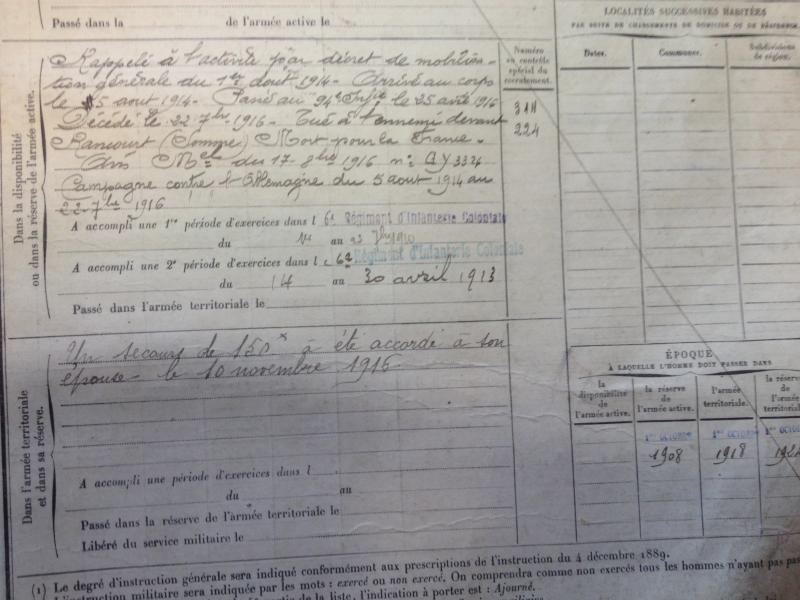 Passé dans la
de l'armée active le
LOCALITÉS SUCCESSIVES HABITÉES
PAR SUITE DE CHANGEMENTS DE DOMICILE OU DE RÉSIDENCE.
Dates.
Communes.
Subdivisions de région.
Dans la disponibilité
ou dans la réserve de l'armée active.
Numéro
au contrôle
spécial du
recrutement.
311
224
Rappelé à l'activité par décret de mobilisa-
tion générale du 1er août 1914 - Arrivé au corps
le 5 aout 1914 - Passé au 94e Infie le 25 avril 1916
Décédé le 22 7bre 1916 - Tué à l'ennemi devant
Rancourt (Somme) Mort pour la France -
Avis Mel du 17 8bre 1916 n° QY 3324
Campagne contre l'Allemagne du 5 aout 1914 au
22 7bre 1916
A accompli une 1re période d'exercices dans l 6e Régiment d'Infanterie Coloniale
du au 23 7bre 1910
A accompli une 2e période d'exercices dans l e 6e Régiment d'Infanterie Coloniale
du 14 au 30 avril 1913
Passé dans l'armée territoriale le
Dans l'armée territoriale
et dans sa réserve.
Un secours de 150 à été accordé à son
épouse - le 10 novembre 1916
A accompli une période d'exercices dans l
du au
Passé dans la réserve de l'armée territoriale le
Libéré du service militaire le
ÉPOQUE
À LAQUELLE L'HOMME DOIT PASSER DANS
la disponibilité de l'armée active.
la réserve de l'armée active.
l'armée territoriale.
la réserve de l'armée territoriale
1er OCTOBRE 1er OCTOBRE 1er OCTOBRE
1908 1918
(1) Le degré d'instruction générale sera indiqué conformément aux prescriptions de l'instruction du 4 décembre 1889.
L'instruction militaire sera indiquée par les mots : exercé ou non exercé. On comprendra comme non exercés tous les hommes n'ayant pas
de la liste, l'indication à porter est : Ajourné.